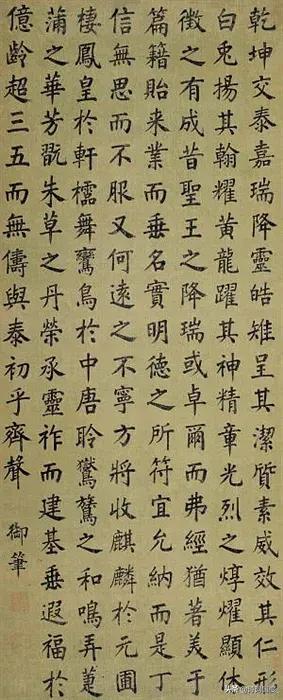 乾坤交泰嘉瑞降靈皓雉呈其潔質素威效其仁形
白兎揚其翰耀黃龍躍其神精章光烈之焞燿顯休
徵之有成昔聖王之降瑞或卓爾而弗經猶著美于
篇籍貽来業而垂名實明德之所符宜允納而是丁
信無思而不服又何遠之不寧方將收麒麟於元圃
棲鳳皇於軒檽舞鸞鳥於中唐聆鸑鷟之和鳴弄蓂
蒲之華芳翫朱草之丹榮承靈祚而建基垂遐福於
億齡超三五而無儔與泰初乎齊聲
御筆